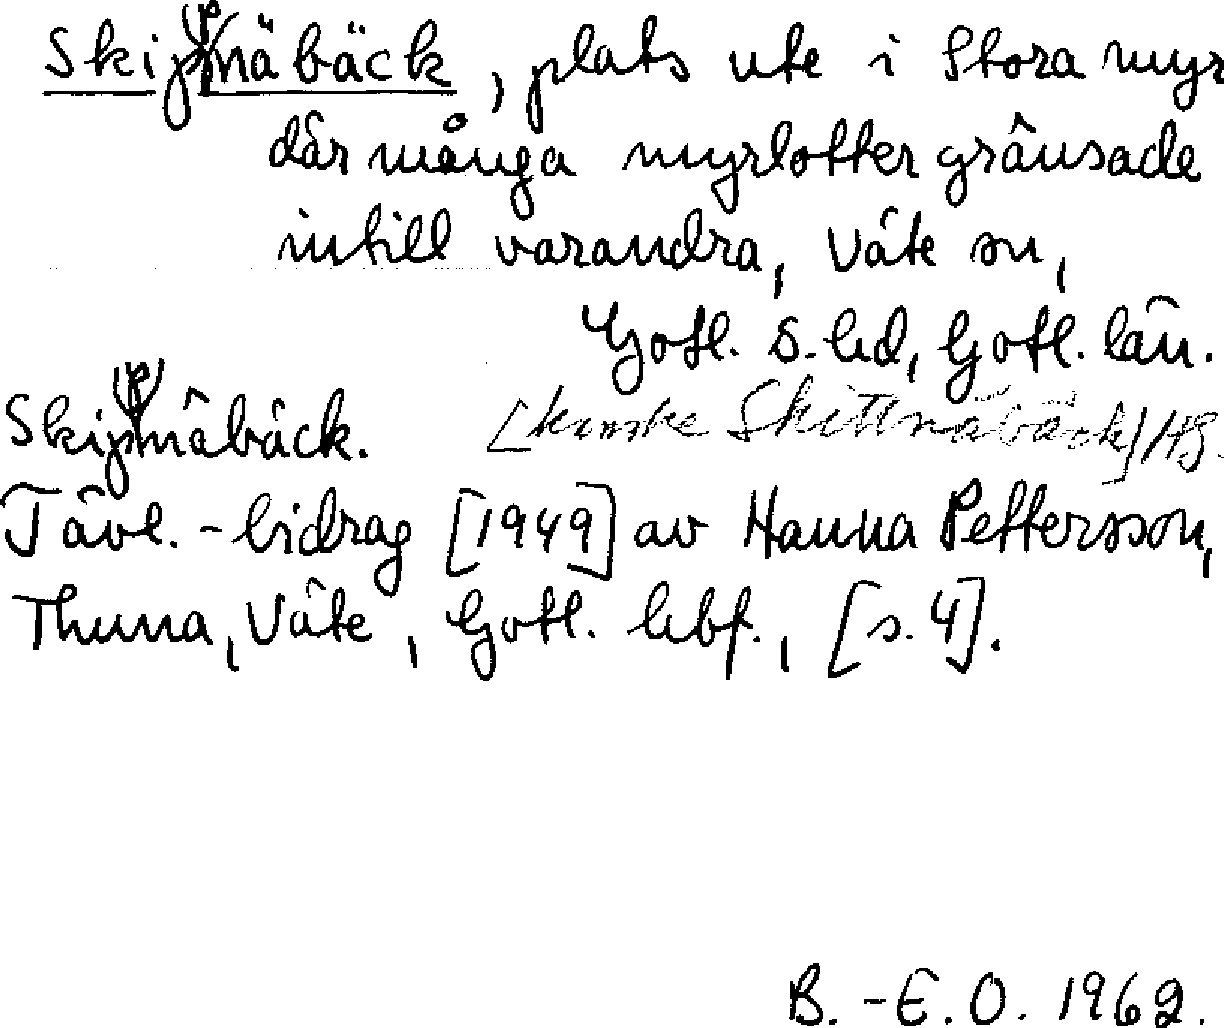 Skip(p)näbäck, plats ute i Stora myr
där många myrlotter gränsade
intill varandra, Väte sn,
Gotl. s. hd, Gotl. län.
Skip(p)näbäck. [kanske Skittnäbäck]/HG.
Tävl.-bidrag [1949] av Hanna Pettersson,
Thuna, Väte, Gotl. hbf., [s. 4].
B.-E.O. 1962.